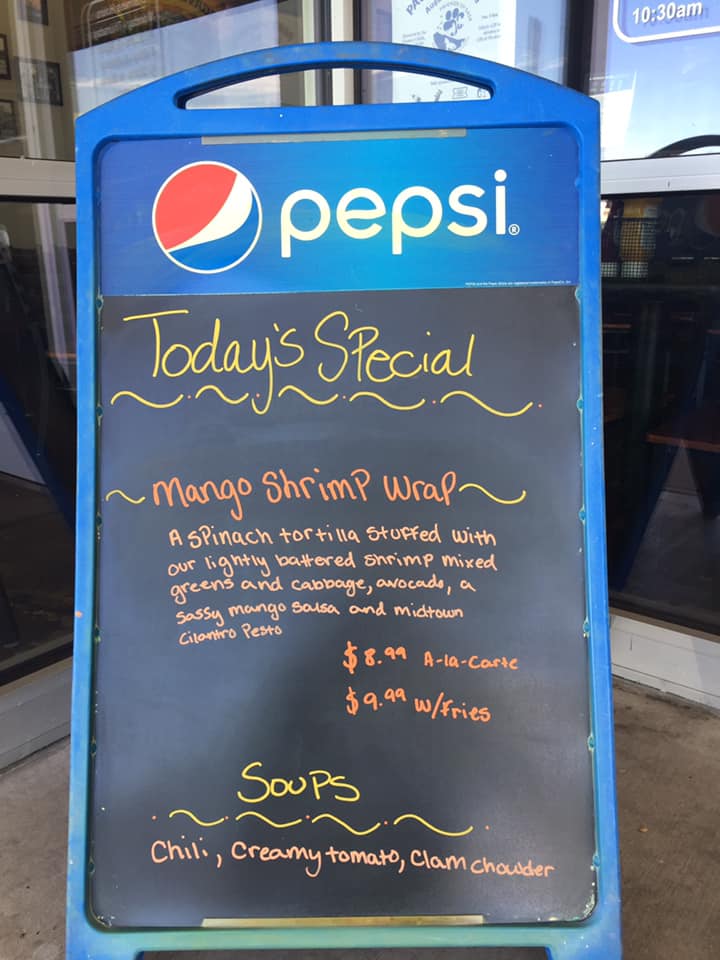 10:30am
pepsi®
Today's Special
~ Mango Shrimp Wrap ~
A spinach tortilla stuffed with
our lightly battered shrimp mixed
greens and cabbage, avocado, a
sassy mango salsa and midtown
Cilantro Pesto
$8.99 A-la-Carte
$9.99 w/fries
Soups
Chili, Creamy tomato, Clam chowder